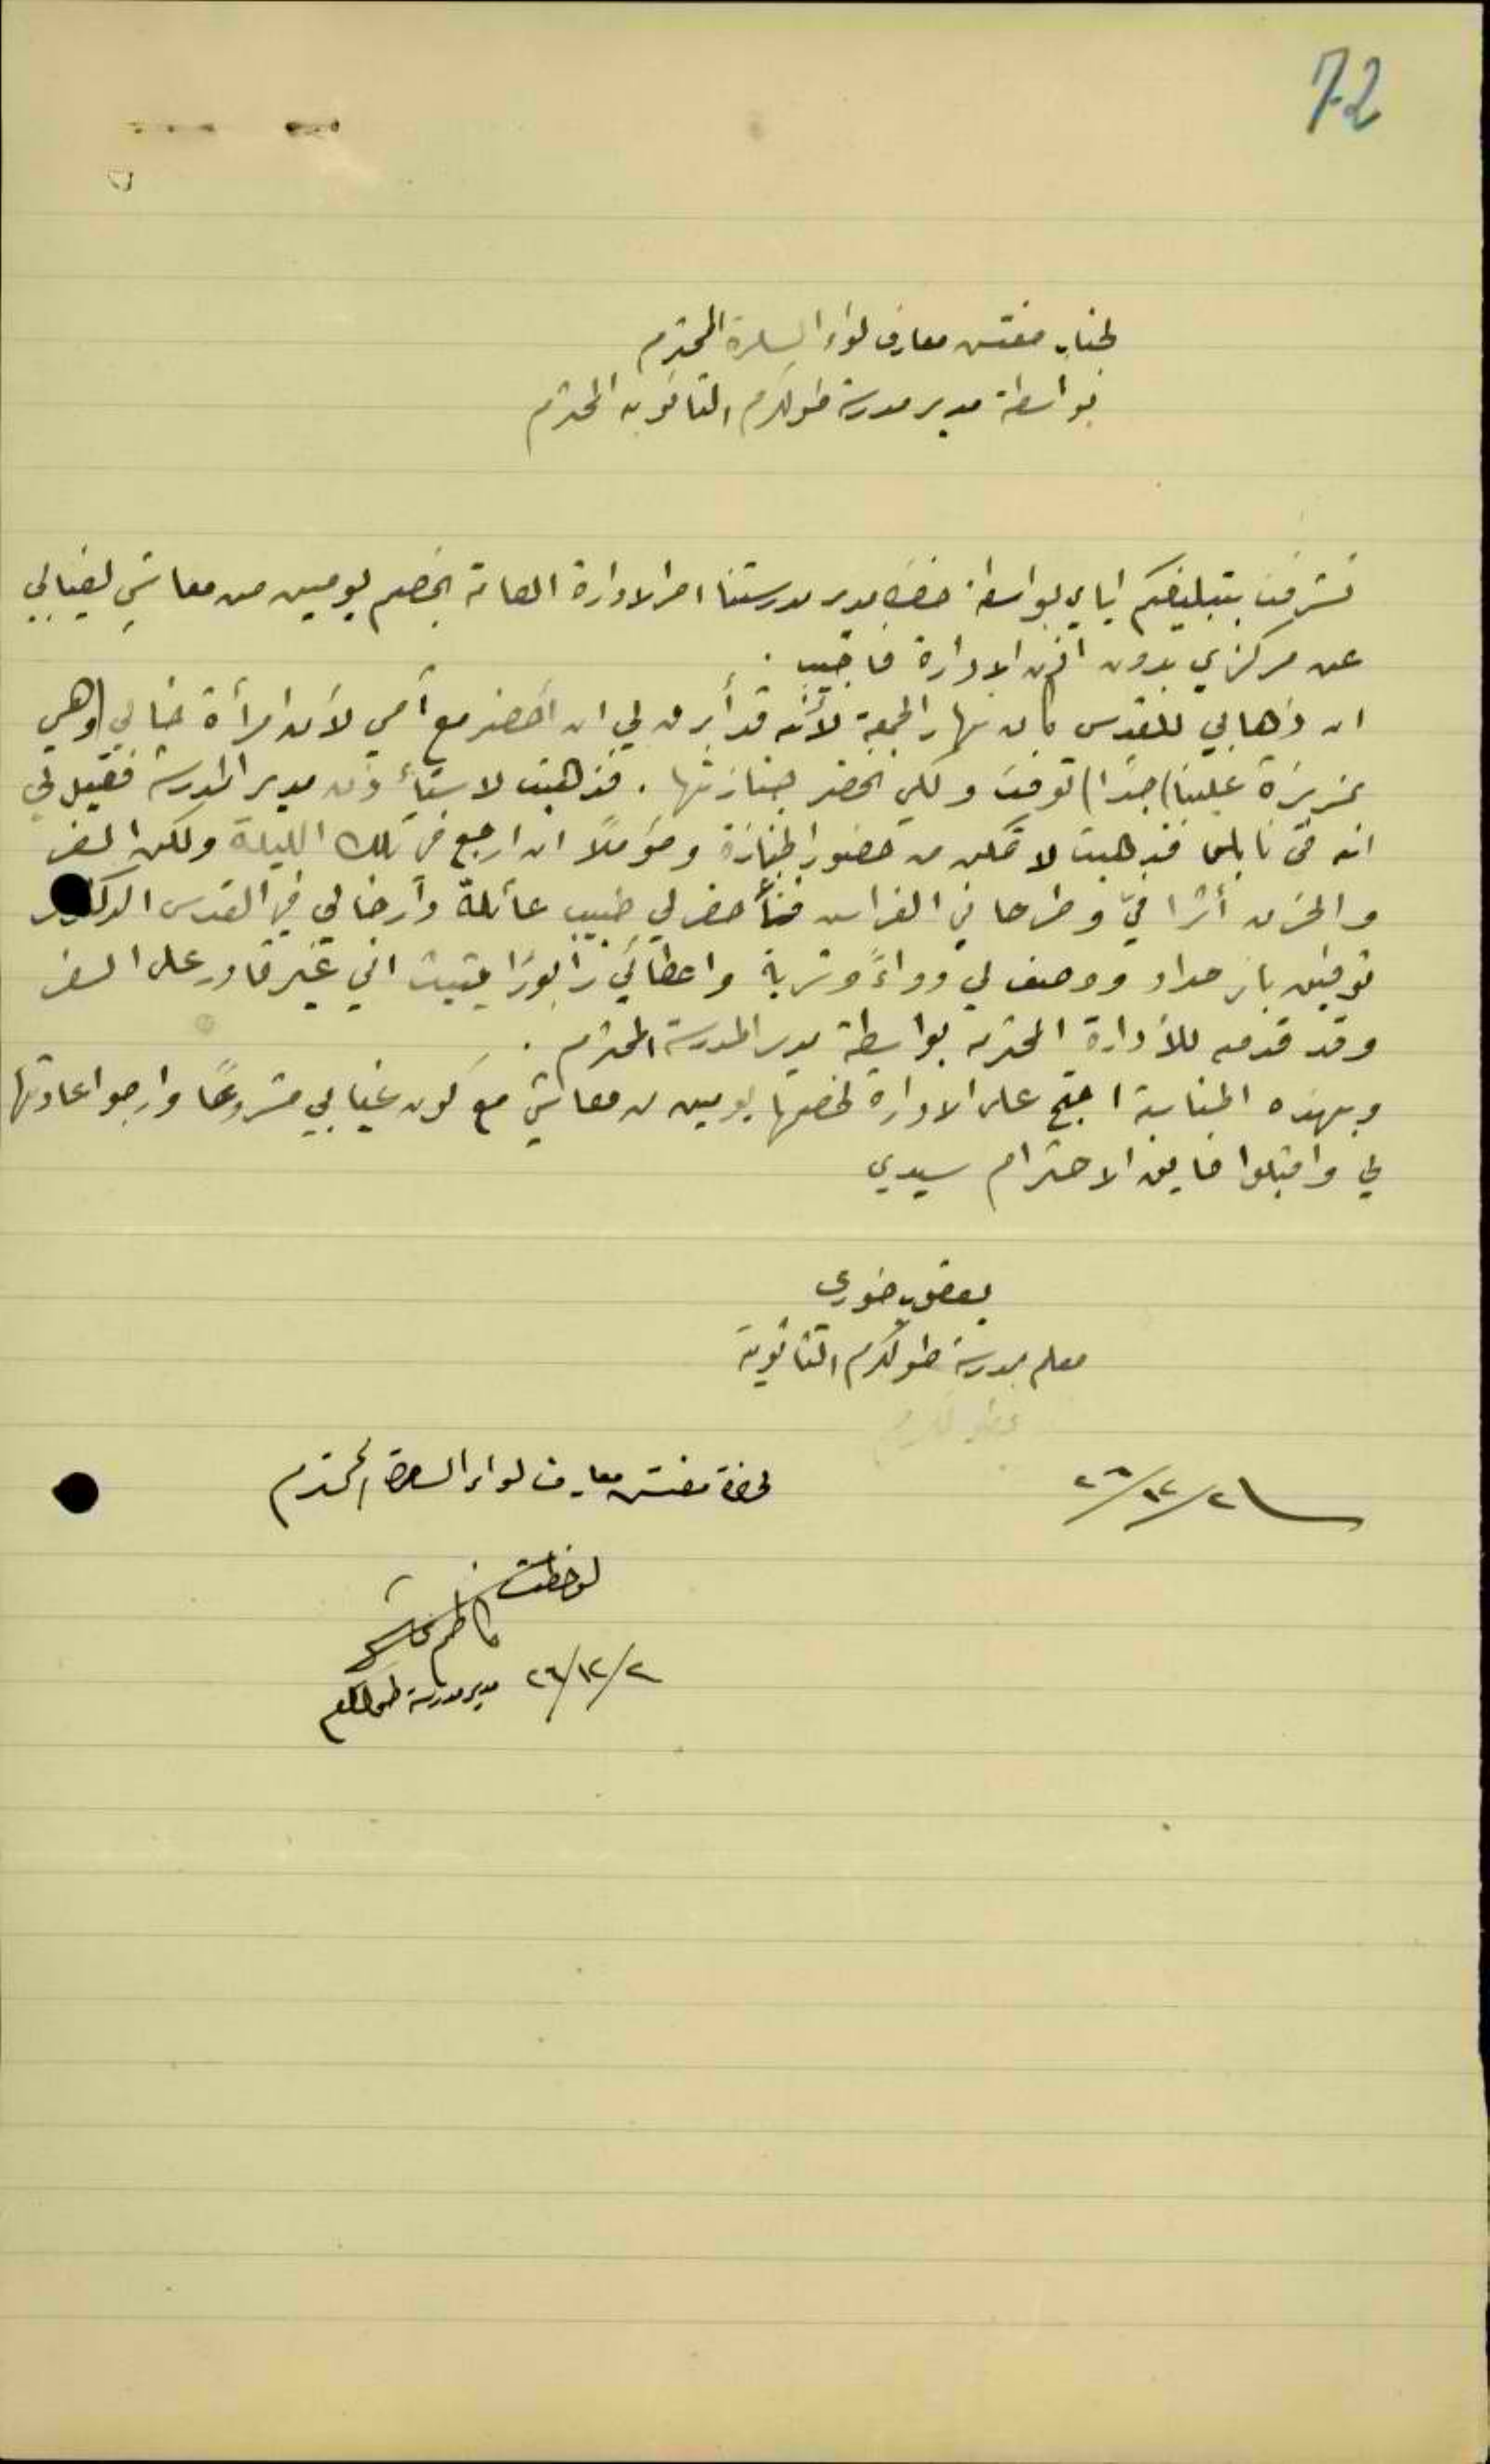 72
لجناب مفتش معارف لواء السامرة المحترم
بواسطة مدير مدرسة طولكرم الثانوية المحترم
تشرفت بتبليغكم اياي بواسطة حضرة مدير مدرستنا امر الادارة العامة بخصم يومين من معاشي لغيابي
عن مركزي بدون اذن الادارة فاجيب .
ان ذهابي للقدس كان نهار الجمعة لأنه قد أبرق لي ان أحضر مع أمي لأن امرأة خالي (وهي
عزيزة علينا جدًا) توفت ولكي نحضر جنازتها . فذهبت لاستأذن مدير المدرسة فقيل لي
انه في نابلس فذهبت لاتمكن من حضور الجنازة ومؤملاً ان ارجع في تلك الليلة ولكن السفر
والحزن أثرا فيّ وطرحاني الفراش فأحضر لي طبيب عائلة دار خالي في القدس الدكتور
توفيق بأن حداد ووصف لي دواءً وشربة واعطاني رابورًا يثبت اني غير قادر على السفر
وقد قدمته للأدارة المحترمة بواسطة مدير المدرسة المحترم .
وبهذه المناسبة احتج على الادارة لخصمها يومين من معاشي مع كون غيابي مشروعًا وارجو اعادتها
لي واقبلوا فايق الاحترام سيدي
يعقوب خوري
معلم بمدرسة طولكرم الثانوية
طولكرم
لحضرة مفتش معارف لواء السامرة المحترم
لوحظت
كاظم
٢٦/١٢/٢
مدير مدرسة طولكرم